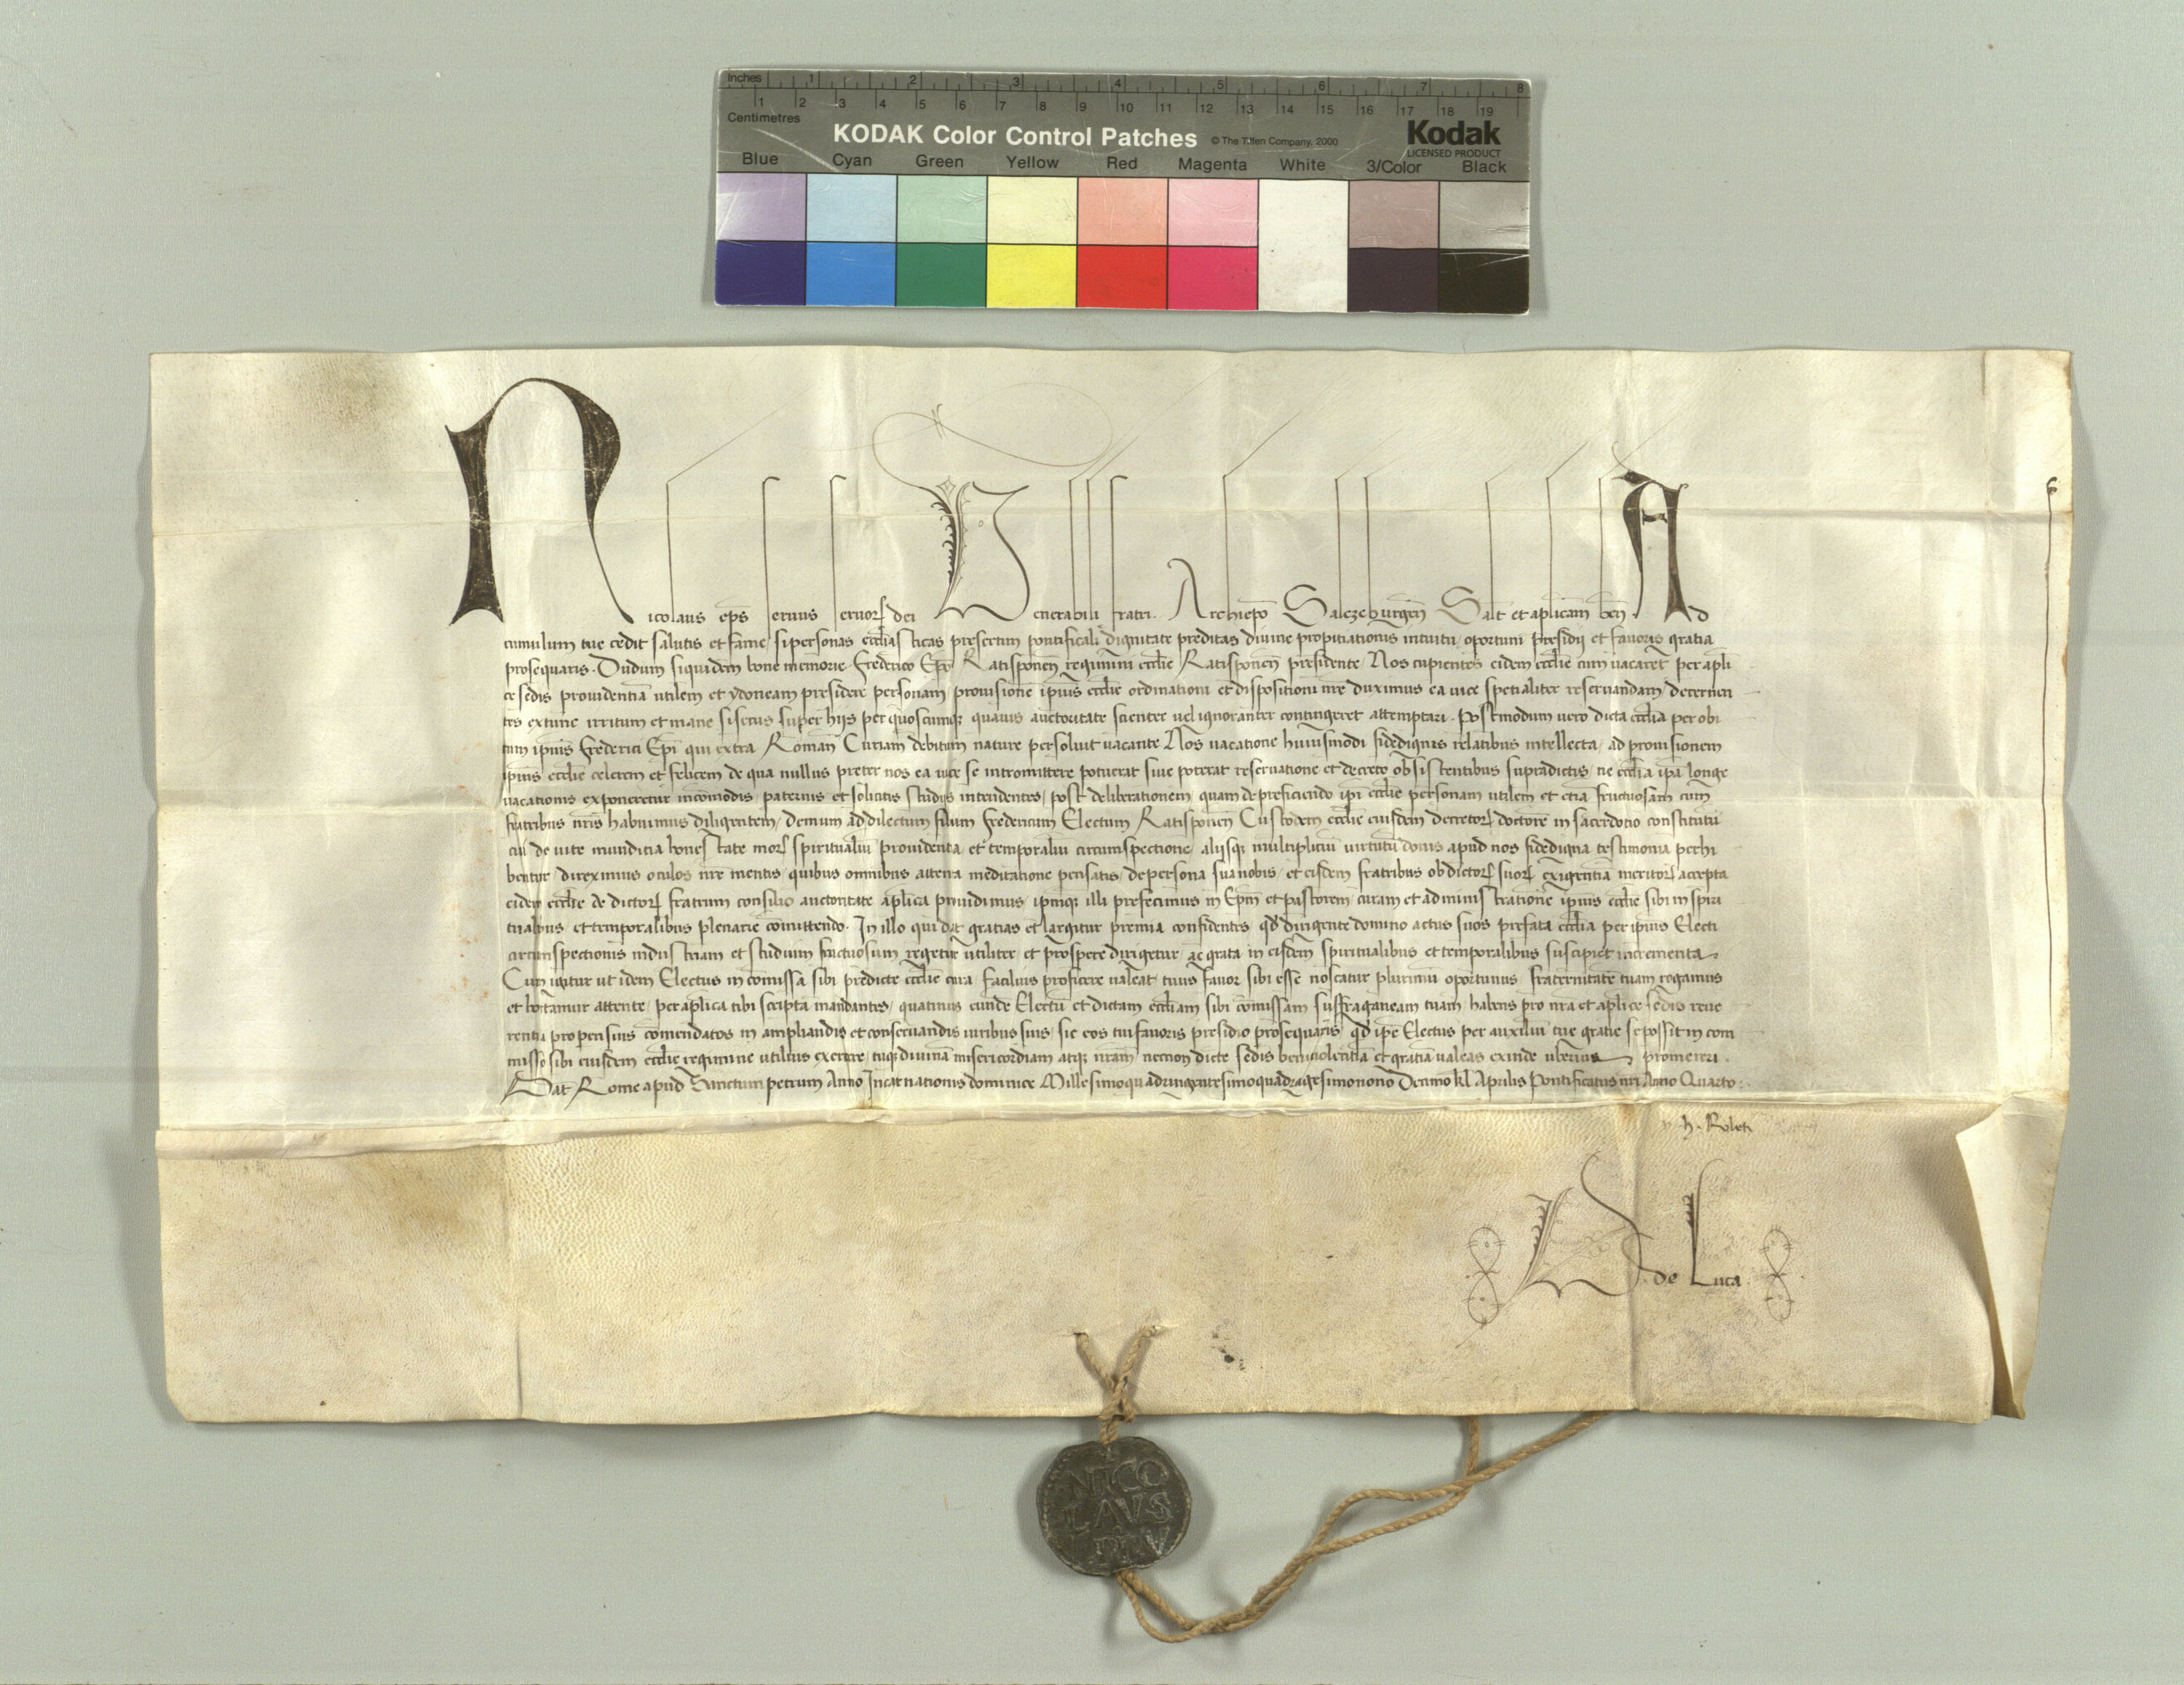 Inches 1 2 3 4 5 6 7 8
1 2 3 4 5 6 7 8 9 10 11 12 13 14 15 16 17 18 19
Centimetres
KODAK Color Control Patches © The Tiffen Company, 2000 Kodak
LICENSED PRODUCT
Blue Cyan Green Yellow Red Magenta White 3/Color Black
Nicolaus ep̄s seruus seruorꝝ dei Venerabili fratri Archiep̄o Salczeburgen̄ Salt̄ et apl̄icam ben̄. Ad
cumulum tue cedit salutis et fame si personas eccl̄iasticas presertim pontificali dignitate preditas diuine propitiationis intuitu oportuni presidij et fauoris gratia
prosequaris. Dudum siquidem bone memorie Frederico Ep̄o Ratisponen̄ regimini eccl̄ie Ratisponen̄ presidente Nos cupientes eidem eccl̄ie cum uacaret per apl̄i
ce sedis prouidentiā utilem et ydoneam presidere personam prouisionē ip̄ius eccl̄ie ordinationi et dispositioni nr̄e duximus ea uice spetialiter reseruandam decernen
tes extunc irritum et inane si secus super hijs per quoscumqꝫ quauis auctoritate scienter uel ignoranter contingeret attemptari. Postmodum uero dicta eccl̄ia per obi
tum ip̄ius Frederici Ep̄i qui extra Romanā Curiam debitum nature persoluit uacante Nos uacatione huiusmodi fidedignis relatibus intellecta ad prouisionem
ip̄ius eccl̄ie celerem et felicem de qua nullus preter nos ea uice se intromittere potuerat siue poterat reseruatione et decreto obsistentibus supradictis ne eccl̄ia ip̄a longe
uacationis exponeretur incōmodis paternis et solicitis studijs intendentes post deliberationem quam de preficiendo ip̄i eccl̄ie personam utilem et etiā fructuosam cum
fratribus nr̄is habuimus diligentem demum ad dilectum filium Fredericum Electum Ratisponen̄ Custodem eccl̄ie eiusdem decretorꝝ doctorē in sacerdotio constitutū
cui de uite munditia honestate morꝝ spiritualiū prouidentia et temporaliū circumspectione alijsqꝫ multiplicium uirtutū donis apud nos fidedigna testimonia perhi
bentur direximus oculos nr̄e mentis quibus omnibus attenta meditatione pensatis de persona sua nobis et eisdem fratribus ob dictorꝝ suorꝝ exigentiā meritorꝝ accepta
eidem eccl̄ie de dictorꝝ fratrum consilio auctoritate apl̄ica prouidimus ip̄umqꝫ illi prefecimus in Ep̄m et pastorem curam et administrationē ip̄ius eccl̄ie sibi in spiri
tualibus et temporalibus plenarie cōmittendo. In illo qui dat gratias et largitur premia confidentes qd̄ dirigente domino actus suos prefata eccl̄ia per ip̄ius Electi
circumspectionis industriam et studium fructuosum regetur utiliter et prospere dirigetur ac grata in eisdem spiritualibus et temporalibus suscipiet incrementa
Cum igitur ut idem Electus in cōmissa sibi predicte eccl̄ie cura facilius proficere ualeat tuus fauor sibi esse noscatur plurimū oportunus fraternitatē tuam rogamus
et hortamur attente per apl̄ica tibi scripta mandantes quatinus eundē Electū et dictam eccl̄iam sibi cōmissam suffraganeam tuam habens pro nr̄a et apl̄ice sedis reue
rentia propensius cōmendatos in ampliandis et conseruandis iuribus suis sic eos tui fauoris presidio prosequaris qd̄ ip̄e Electus per auxiliū tue gratie se possit in com
misso sibi eiusdem eccl̄ie regimine utilius exercere tuqꝫ diuinā misericordiam atqꝫ nr̄am necnon dicte sedis beniuolentiā et gratiā ualeas exinde uberius promereri.
Dat̄ Rome apud Sanctum petrum Anno Incarnationis dominice Millesimoquadringentesimoquadragesimonono Decimo kl̄ Aprilis Pontificatus nr̄i Anno Quarto
de Luca
NICO
LAVS
PP V